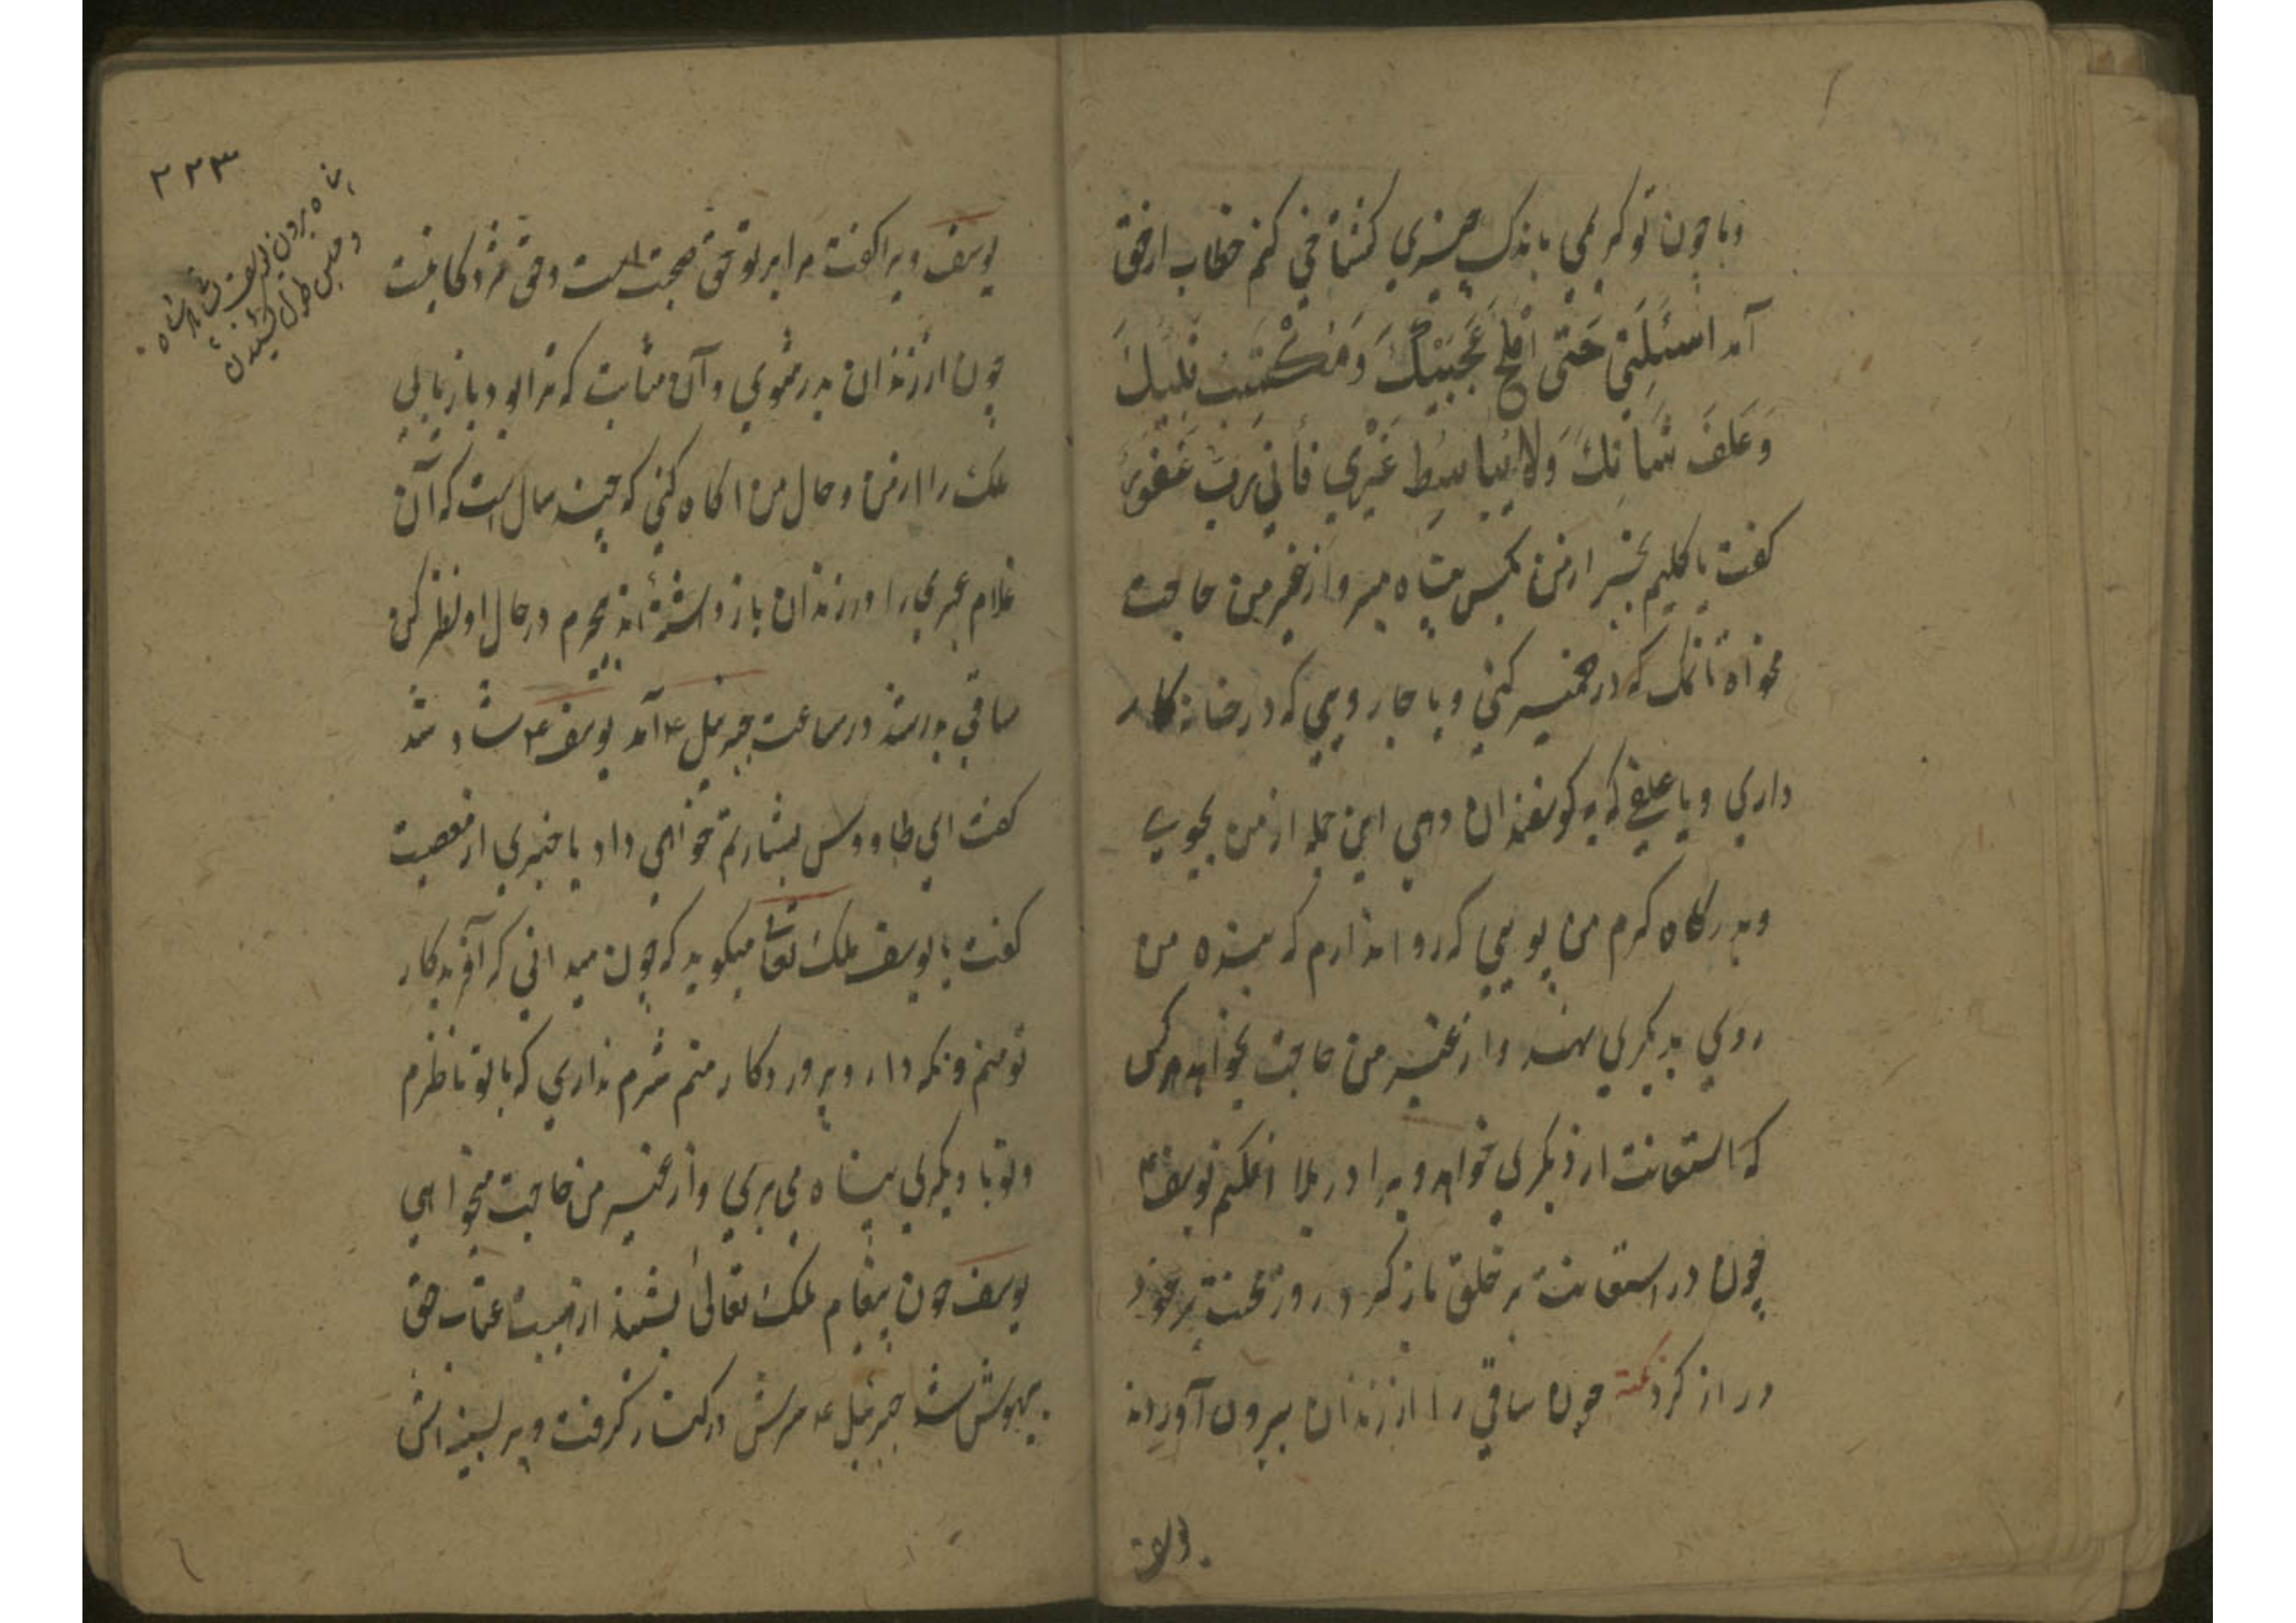 و با چون تو کریمی باندک چیزی کستاخی کنم خطاب از حق
آمد اسئلنی حتی املح عجینک و مکتب قلیلک
و علف شاتک ولا تباسط غیری فانی رب غفور
کفت یا کلیم بجز از من بکس پناه مبر و از غیر من حاجت
مخواه تا نمک که در خمیر کنی و یا جاروبی که در خانه کار
داری و یا علفی که به کوسفندان دهی این جمله از من بجویی
و بدرکاه کرم من پویی که روا ندارم که بنده من
روی بدیکری نهند و از غیر من حاجت بخواهد هر کس
که استعانت از دیکری خواهد ویرا در بلا افکنم یوسف ع
چون در استعانت بر خلق باز کرد روز محنت بر خود
دراز کرد نکته چون ساقی را از زندان بیرون آوردند
یوسف
۲۲۳
پناه بردن یوسف بشاه
و حبس طول کشیدن
یوسف ویرا کفت مرا بر تو حق صحبت است و حق مژدکانیست
چون از زندان بدر شوی و آن منابت که ترا بود باز یابی
ملک را از من و حال من اکاه کنی که چند سال است که آن
غلام عبری را در زندان باز داشته‌اند بیجرم در حال او نظر کن
ساقی بدر شد در ساعت جبرئیل ع آمد یوسف ع شاد شد
کفت ای طاووس بشارتم خواهی داد یا خبری از معصیت
کفت یا یوسف ملک تعالی میکوید که چون میدانی که آفریدکار
تو منم و نکه دار و پروردکار منم شرم نداری که با تو ناظرم
و تو با دیکری پناه می بری و از غیر من حاجت میخواهی
یوسف چون پیغام ملک تعالی بشنید از هیبت عتاب حق
بیهوش شد جبرئیل ع سرش در کنار کرفت و بر سینه اش